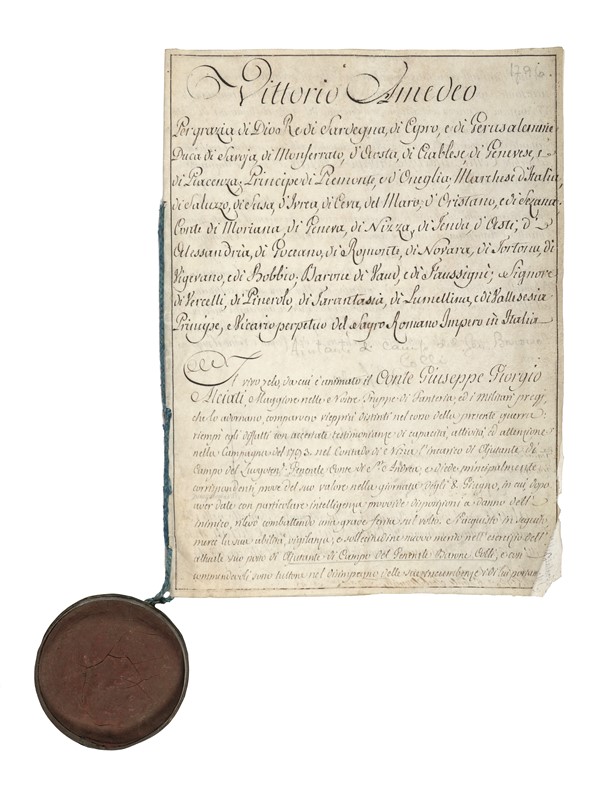 1796.
Vittorio Amedeo
Per grazia di Dio Re di Sardegna, di Cipro, e di Gerusalemme
Duca di Savoja, di Monferrato, d'Aosta, di Ciablese, di Genevese, e
di Piacenza; Principe di Piemonte, e d'Oneglia; Marchese d'Italia,
di Saluzzo, di Susa, d'Ivrea, di Ceva, del Maro, d'Oristano, e di Sezana
Conte di Moriana, di Geneva, di Nizza, di Tenda, d'Asti, d'
Alessandria, di Goceano, di Romonte, di Novara, di Tortona, di
Vigevano, e di Bobbio; Barone di Vaud, e di Faussignì; Signore
di Vercelli, di Pinerolo, di Tarantasia, di Lumellina, e di Vallesesia
Principe, e Vicario perpetuo del Sagro Romano Impero in Italia
Aiutante di Campo Barone
Colli
Il vivo zelo, da cui è animato il Conte Giuseppe Giorgio
Alciati, Maggiore nelle Nostre Truppe di Fanteria, ed i militari pregj,
che lo adornano, comparvero vieppiù distinti nel corso della presente guerra:
riempì egli diffatti con accertate testimonianze di capacità, attività, ed attenzione
nella Campagna del 1793. nel Contado di Nizza l'incarico di Ajutante di
Campo del Luogoten.e Generale Conte di St. Andrea, e diede principalmente
corrispondenti prove del suo valore nella giornata degli 8. Giugno, in cui dopo
aver date con particolare intelligenza provvide disposizioni a danno dell'
inimico, rilevò combattendo una grave ferita sul volto. S'acquistò in seguito
mercè la sua abilità, vigilanza, e sollecitudine nuovo merito nell'esercizio dell'
attuale suo posto di Ajutante di Campo del Generale Barone Colli, e così
commendevoli sono tuttora nel disimpegno delle sue incumbenze